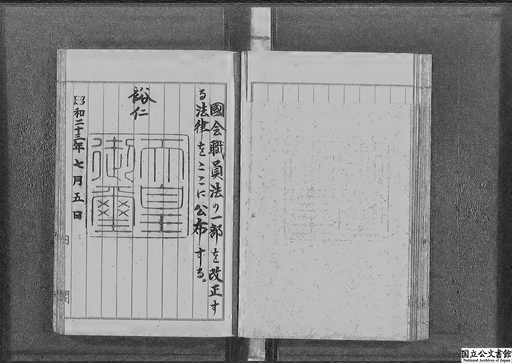 國会職員法の一部を改正す
る法律をここに公布する。
裕仁
天皇
御璽
昭和二十三年七月五日
国立公文書館
National Archives of Japan